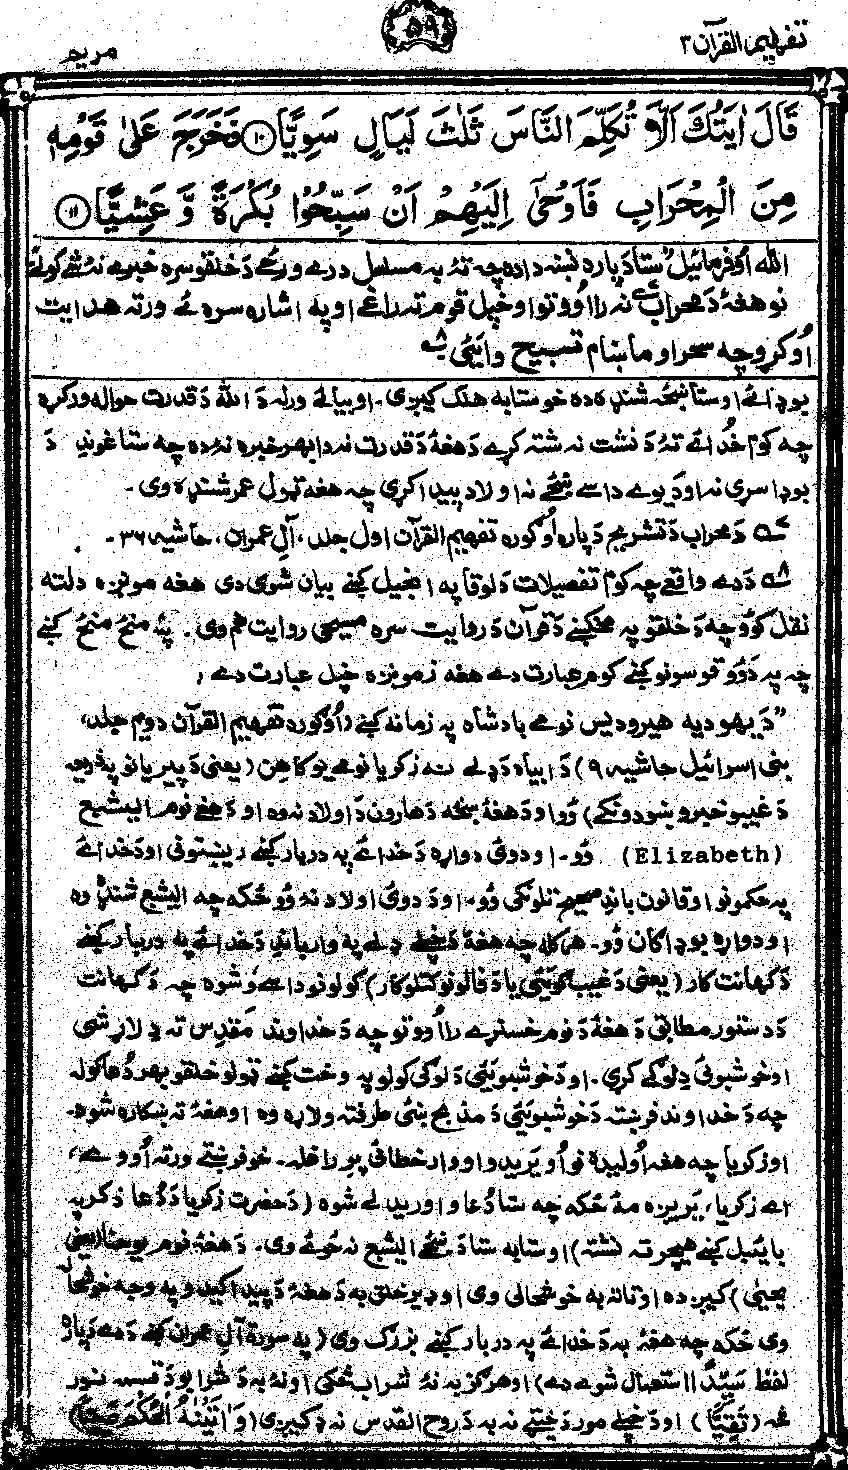 تفهيم القرآن ۳
۵۹
مريم
قَالَ اٰيَتُكَ اَلَّا تُكَلِّمَ النَّاسَ ثَلٰثَ لَيَالٍ سَوِيًّا ۱۰ فَخَرَجَ عَلٰى قَوْمِهٖ
مِنَ الْمِحْرَابِ فَاَوْحٰٓى اِلَيْهِمْ اَنْ سَبِّحُوْا بُكْرَةً وَّ عَشِيًّا ۱۱
الله اُوفرمائيل ستا دَپاره نښه داده چه تۀ به مسلسل درے ورځے دَ خلقو سره خبرے نۀ شے کولے
نو هغۀ دَ محراب نه رااُووتو او خپل قوم ته راغے او په اشاره سره ئے ورته هدايت
اُوکړو چه سحر او ماښام تسبيح وايئى
بوډائے او ستا ښځه شنډه ده خو ستا به هلک کيږى. او بيائے ورله دَ اللهٔ دَ قدرت حواله ورکړه
چه کوم خُدائے تۀ دَ نشت نه شته کړے دَ هغۀ دَ قدرت نه دا بهر خبره نۀ ده چه ستا غوندِ دَ
بوډا سړى نه او دَ يوے داسے ښځے نه اولاد پيدا کړى چه هغه ټول عمر شنډه وى.
دَ محراب دَ تشريح دَپاره اُوګوره تفهيم القرآن اول جلد، آلِ عمران، حاشيه ۳۶.
دَ دے واقعے چه کوم تفصيلات دَ لوقا په انجيل کښے بيان شوى دى هغه مونږه دلته
نقل کوُو چه دَ خلقو په مخکښے دَ قرآن دَ روايت سره مسيحى روايت هم وى. پۀ منځ منځ کښے
چه په دَوو قوسونو کښے کوم عبارت دے هغه زمونږه خپل عبارت دے،
”دَ يهوديه هيروديس نومے بادشاه په زمانه کښے (اُوګوره تفهيم القرآن دويم جلد،
بنى اسرائيل حاشيه ۹) دَ ابياه دَ ډلے نه زکريا نومے يو کاهن (يعنى دَ پيريانو په ذريعه
دَ غيبو خبرو ښودونکے) وُو او دَ هغۀ ښځه دَ هارون دَ اولاد نه وه او دَ هغے نوم اليشبع
(Elizabeth) وُو. او دوئى دواړه دَ خدائے په دربار کښے ريښتونى او دَ خدائے
په حکمونو او قانون باندِ صحيح تلونکى وُو، او دَ دوئى اولاد نۀ وُو ځکه چه اليشبع شنډه وه
او دواړه بوډاګان وُو. هرکله چه هغۀ دَ خپلے ډلے په وار باندِ دَ خدائے په دربار کښے
دَ کهانت کار (يعنى دَ غيب ګويئى يا دَ فالونو کتلو کار) کولو نو داسے وشوه چه دَ کهانت
دَ دستور مطابق دَ هغۀ دَ نوم خسڼرے رااُووتو چه دَ خداوند مَقدِس ته دِ لاړ شى
او خوشبوئى دِ لوګے کړى. او دَ خوشبويئى دَ لوګى کولو په وخت کښے ټولو خلقو بهر دُعا کوله
چه دَ خداوند فرښته دَ خوشبويئى دَ مذبح ښئى طرف ته ولاړه وه او هغۀ ته ښکاره شوه.
او زکريا چه هغه اُوليده نو اُو يَريدو او وار خطائى پرے راغله. خو فرښتے ورته اُووے،
اے زکريا، يَريږه مۀ ځکه چه ستا دُعا واوريدلے شوه (دَ حضرت زکريا دَ دُعا ذکر په
بائيبل کښے هيچرته نشته) او ستا به ستا دَ ښځے اليشبع نه ځوئے وى. دَ هغۀ نوم يوحنا (يعنى
يحيىٰ) کيږده او تا ته به خوشحالى وى او ډير خلق به دَ هغۀ دَ پيدا کيدو په وجه خوشحال
وى ځکه چه هغه به دَ خدائے په دربار کښے بزرګ وى (په سورة آلِ عمران کښے دَ دے دَپاره
لفظ سَيِّدًا استعمال شوے دے) او هرګز به نۀ شراب څکى او نۀ به دَ شرابو دَ قسمه نور
څۀ (تَقِيًّا) او دَ خپلے مور دَ خيټے نه به دَ روح القدس نه ډک وى (وَاٰتَيْنٰهُ الْحُكْمَ صَبِيًّا)